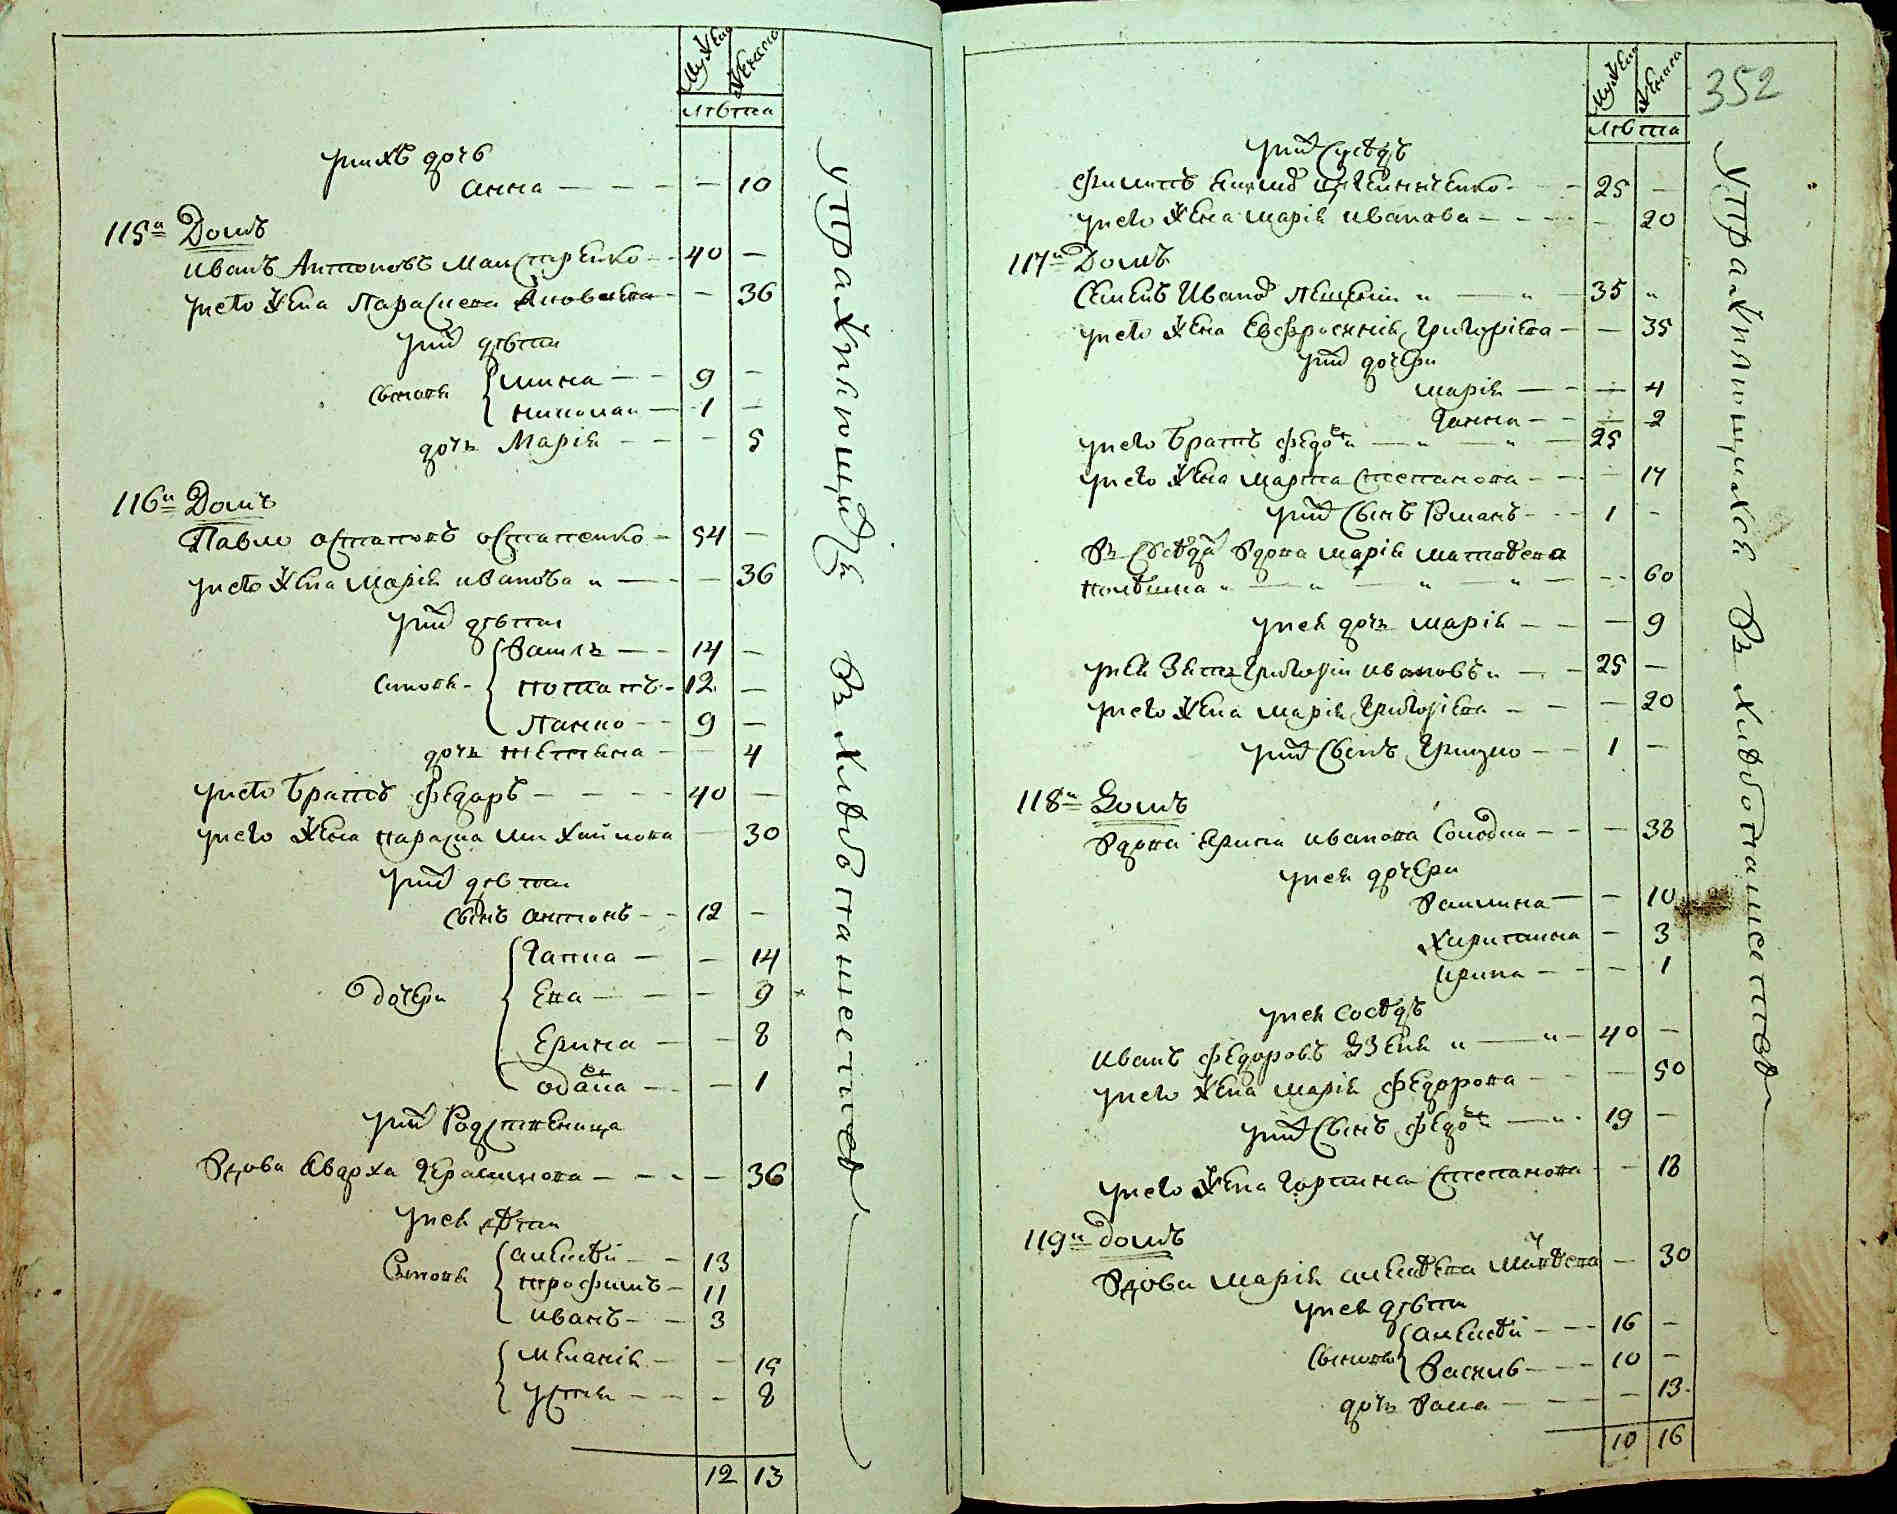 Мужеска Женска
Лѣта
у нихъ дочь
Анна — — — — 10
115й Домъ
Иванъ Антоновъ — — 40 —
у него жена Параскева — — 36
у нихъ дѣти
сыновя Мина — — 9 —
Николай — 1 —
дочь Марія — — — 5
116й Домъ
Павло Остаповъ Остапенко — 54 —
у него жена Марія Иванова — — 36
у нихъ дѣти
сыновя Василь — — 14 —
Потапъ — 12 —
Панко — — 9 —
дочь Тетяна — — 4
у него братъ Федоръ — — — — 40 —
у него жена Параска Михайлова — 30
у нихъ дѣти
сынъ Антонъ — — 12 —
дочери Ганна — — 14
Ева — — — 9
Ерина — — 8
— — 1
у нихъ родственница
вдова Явдоха Герасимова — — — — 36
у неи дѣти
сыновя Алексѣй — — 13
Трофимъ — 11
Иванъ — — 3
Меланія — — 15
Устия — — — 8
12 13
упражняющиися въ хлѣбопашествѣ
352
Мужеска Женска
Лѣта
у нихъ сусѣдъ
Филипъ — — 25 —
у него жена Марія Иванова — — — — 20
117й Домъ
Семенъ Иванов — — 35 „
у него жена Евфросинія Григоріева — — 35
у нихъ дочери
Марія — — — 4
Ганна — — — 2
у него братъ Федо — — 25
у него жена Марта Степанова — — — 17
у нихъ сынъ Романъ — — 1 —
въ сусѣдях вдова Марія Матвѣева
— — 60
у неи дочь Марія — — — 9
у неи зять Григорій Ивановъ „ — 25 —
у него жена Марія Григоріева — — — 20
у нихъ сынъ Грицко — — 1 —
118й Домъ
вдова Ирина Иванова — — — 38
у неи дочери
Василина — — 10
Хиритина — 3
Ирина — — — 1
у неи сосѣдъ
Иванъ Федоровъ — — 40 —
у него жена Марія Федорова — — — 50
у нихъ сынъ Федо — 19 —
у него жена Горпина Степанова — — 18
119й домъ
вдова Марія Алексѣева — 30
у неи дѣти
сыновя Алексѣй — — — 16 —
Василь — — — 10 —
дочь Васа — — — — 13
10 16
упражняющихся въ хлѣбопашествѣ